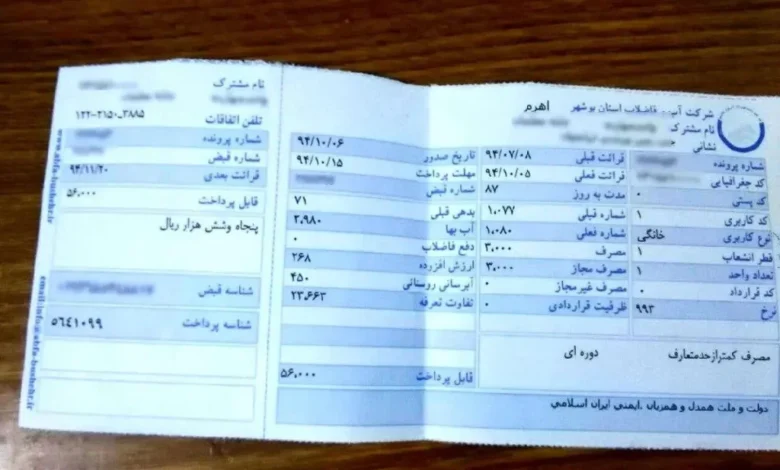 شرکت آب و فاضلاب استان بوشهر اهرم
نام مشترک
نشانی
شماره پرونده
کد جغرافیایی
کد پستی ۰
کد کاربری ۱
نوع کاربری خانگی
قطر انشعاب ۱
تعداد واحد ۱
کد قرارداد ۰
نرخ ۹۹۳
قرائت قبلی ۹۴/۰۷/۰۸
قرائت فعلی ۹۴/۱۰/۰۵
مدت به روز ۸۷
شماره قبلی ۱,۰۷۷
شماره فعلی ۱,۰۸۰
مصرف ۳,۰۰۰
مصرف مجاز ۳,۰۰۰
مصرف غیرمجاز ۰
ظرفیت قراردادی ۰
تاریخ صدور ۹۴/۱۰/۰۶
مهلت پرداخت ۹۴/۱۰/۱۵
شماره قبض
بدهی قبلی ۷۱
آب بها ۲,۹۸۰
دفع فاضلاب ۰
ارزش افزوده ۲۶۸
آبرسانی روستایی ۴۵۰
تفاوت تعرفه ۲۳,۶۶۳
مصرف کمترازحدمتعارف دوره ای
قابل پرداخت ۵۶,۰۰۰
دولت و ملت همدل و همزبان .ایمنی ایران اسلامی
نام مشترک
تلفن اتفاقات ۱۲۲-۲۱۵۰_۳۸۸۵
شماره پرونده
شماره قبض
قرائت بعدی ۹۴/۱۱/۲۰
قابل پرداخت ۵۶,۰۰۰
پنجاه وشش هزار ریال
شناسه قبض
شناسه پرداخت ۵۶۴۱۰۹۹
www.abfa-bushehr.ir
email:info@abfa-bushehr.ir